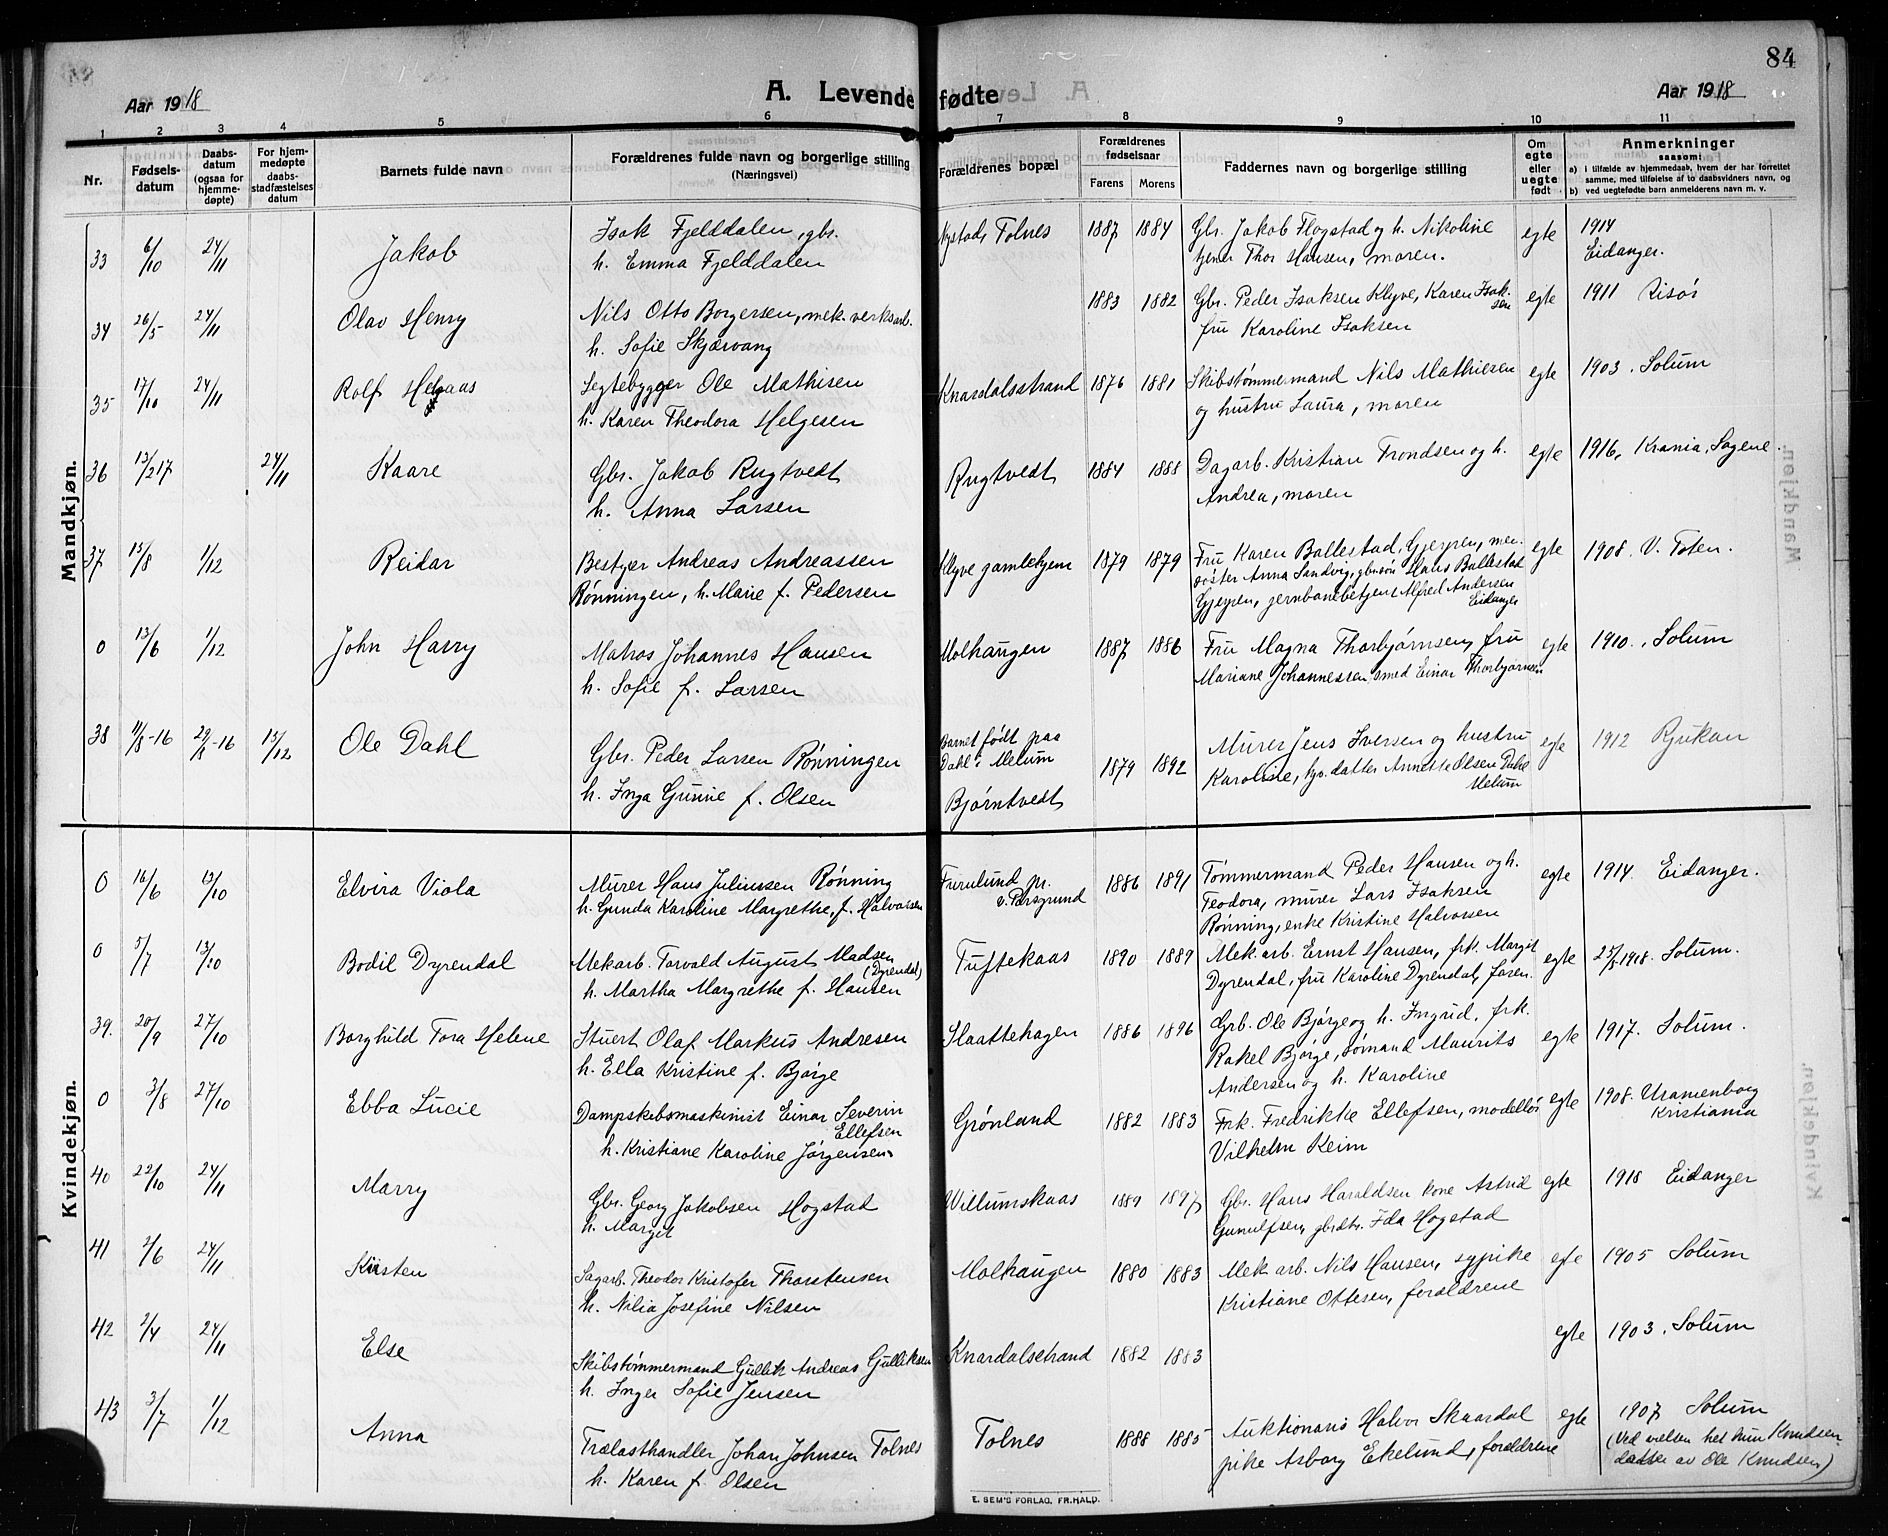 84
Aar 1918
A. Levende fødte
Aar 1918
1 2 3 4 5 6 7 8 9 10 11
Nr.
Fødsels-
datum
Daabs-
datum
(ogsaa for
hjemme-
døpte)
For hjem-
medøpte
daabs-
stadfæstelses
datum
Barnets fulde navn
Forældrenes fulde navn og borgerlige stilling
(Næringsvei)
Forældrenes bopæl
Forældrenes
fødselsaar
Farens Morens
Faddernes navn og borgerlige stilling
Om
egte
eller
uegte
født
Anmerkninger
saasom:
a) i tilfælde av hjemmedaab, hvem der har forrettet
samme, med tilføielse af to daabsvidners navn, og
b) ved uegtefødte barn anmelderens navn m. v.
Mandkjøn.
33 6/10 24/11 Jakob
Isak Fjelddalen, gbr.
h. Emma Fjelddalen
Nystad, Tolnes 1887 1884
Gbr. Jakob Flogstad og h. Nikoline
tjener Thor Hansen, moren.
egte 1914
Eidanger.
34 26/5 24/11 Olav Henry
Nils Otto Borgersen, mek. verksarb.
h. Sofie Skjærvang
1883 1882
Gbr. Peder Isaksen Klyve, Karen Isak-
sen
fru Karoline Isaksen
egte 1911 Risør
35 17/10 24/11 Rolf
Segtebygger Ole Mathisen
h. Karen Theodora Helgesen
Knardalsstrand 1876 1881
Skibstømmermand Nils Mathiesen
og hustru Laura, moren
egte 1903. Solum
36 13/2 17 24/11 Kaare
Gbr. Jakob Rugtvedt
h. Anna Larsen
Rugtvedt 1884 1888
Dagarb. Kristian Trondsen og h.
Andrea, moren
egte 1916, Krania, Sagene.
37 15/8 1/12 Reidar
Bestyer Andreas Andreassen
Rønningen, h. Marie f. Pedersen
Klyve gamlehjem 1879 1879
Fru Karen Ballestad, Gjerpen, me-
søster Anna Sandvig, gbrsøn Hans Ballestad
Gjerpen, jernbanebetjent Alfred Andersen
Eidanger
egte 1908. V. Toten.
0 13/6 1/12 John Harry
Matros Johannes Hansen
h. Sofie f. Larsen
Molhaugen 1887 1886
Fru Magna Thorbjørnsen, fru
Mariane Johannessen, smed Einar Thorbjørnsen
egte 1910., Solum
38 11/8-16 29/8-16 15/12 Ole Dahl
Gbr. Peder Larsen Rønningen
h. Inga Gunie f. Olsen
Barnet født paa
Dahl i Melum
Bjørntvedt
1879 1892
Murer Jens Iversen og hustru
Karoline, datter Annette Olsen Dahl
Melum
egte 1912 Rjukan
Kvindekjøn.
0 16/6 13/10 Elvira Viola
Murer Hans Juliussen Rønning
h. Gunda Karoline Margrethe, f. Halvorsen
Frerulund pr.
v. Porsgrund
1886 1891
Tømmermand Peder Hansen og h.
Teodora, murer Lars Isaksen
Rønning, enke Kristine Halvorsen
egte 1914. Eidanger.
0 5/7 13/10 Bodil Dyrendal
Mekarb. Torvald August Madsen
(Dyrendal)
h. Martha Margrethe f. Hansen
Tuftekaas 1890 1889
Mek. arb. Ernst Hansen, frk. Margit
Dyrendal, fru Karoline Dyrendal, faren.
egte 25/5 1918. Solum.
39. 20/9 27/10 Borghild Tora Helene
Stuert Olaf Markus Andresen
h. Ella Kristine f. Bjørge
Slaattehagen 1886 1896
Grb. Ole Bjørge og h. Ingrid, frk.
Rakel Bjørge, sømand Maurits
Andersen og h. Karoline
egte 1917. Solum.
0 3/8 27/10 Ebba Lucie
Dampskibsmaskinist Einar Severin
Ellefsen
h. Kristiane Karoline Jørgensen
Grønland 1882 1883
Frk. Fredrikke Ellefsen, modellør
Vilhelm Keim
egte 1908. Uranienborg
Kristiania
40 22/10 24/11 Marry
Gbr. Georg Jakobsen Hogstad
h. Margit
Willumskaas 1889 1897
Gbr. Hans Haraldsen kone Astrid
Gunulfsen, gbrdtr. Ida Hogstad
egte 1918 Eidanger
41 2/6 24/11 Kirsten
Sagarb. Theodor Kristofer Thorstensen
h. Nilia Josefine Nilsen
Molhaugen 1880 1883
Mek arb. Nils Hansen, sypike
Kristiane Ottesen, forældrene
egte 1905 Solum
42 2/4 24/11 Else
Skibstømmermand Gullik Andreas Gulliksen
h. Inger Sofie Jensen
Knardalstrand 1882 1883
egte 1903. Solum
43 3/7 1/12 Anna
Trælasthandler Johan Johnsen Tolnes
h. Karen f. Olsen
Tolnes 1888 1885
Auktionaris Halvor Skaardal
pike Asborg Ekelund, forældrene
egte 1907 Solum
(Ved vielsen het hun Knudsen
datter av Ole Knudsen)
E. SEM'S FORLAG, FR.HALD.